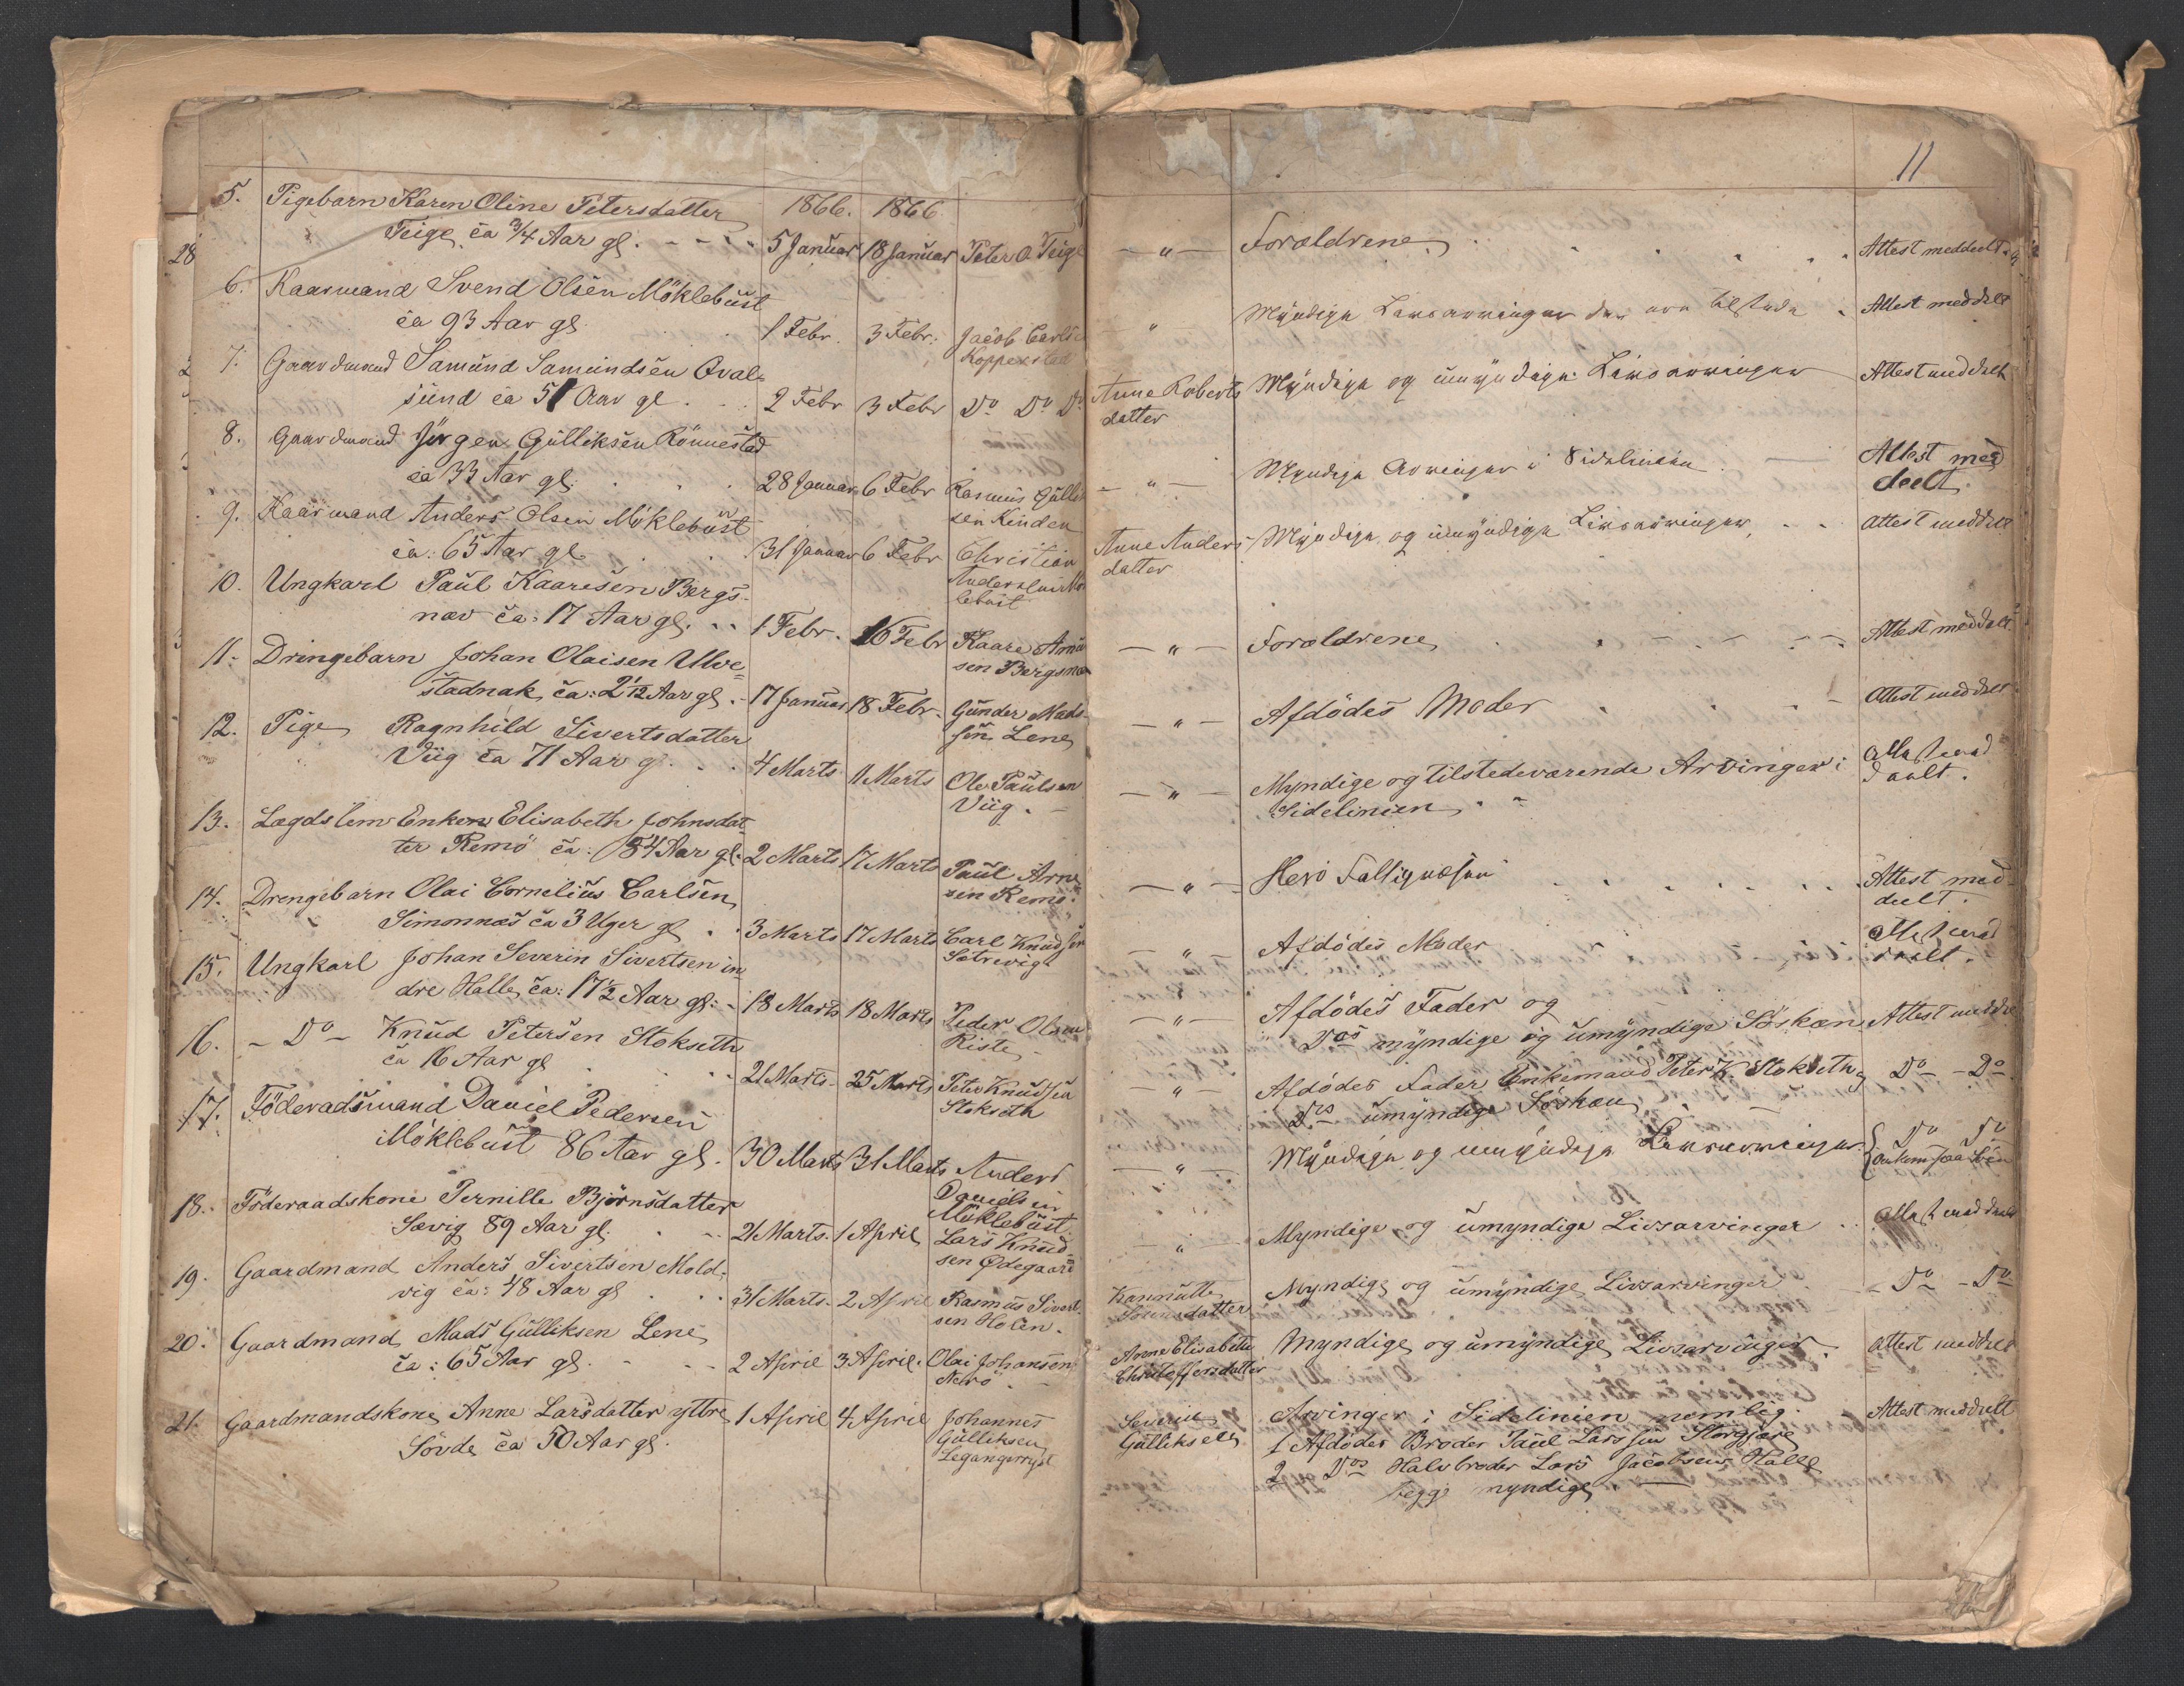 11
1866. 1866
5. Pigebarn Karen Oline Petersdatter
Teige ca 3/4 Aar gl. 5 Januar 18 Januar Peter O Teige — " — Forældrene Attest meddeelt
28
6. Kaarmand Svend Olsen Möklebust
ca 93 Aar gl. 1 Febr. 3 Febr. Jacob Carls — " — Myndige Livsarvinger der ere tilstede Attest meddelt
Kopperstad
7. Gaardmand Samund Samundsen Qval-
sund ca 51 Aar gl. 2 Febr 3 Febr Do Do Do Anne Roberts Myndige og umyndige Livsarvinger Attest meddelt
datter
8. Gaardmand Jörgen Gulliksen Rönnestad
ca 33 Aar gl. 28 Januar 6 Febr Rasmus Gullik — " — Myndige Arvinger i Sidelinien Attest med
sen Kinden deelt.
9. Kaarmand Anders Olsen Möklebust
ca: 65 Aar gl. 31 Januar 6 Febr Christian Anne Anders Myndige og umyndige Livsarvinger, Attest meddelt
Andersen Mö datter
lebust
10. Ungkarl Paul Kaaresen Bergs-
næs ca: 17 Aar gl. 1 Febr. 16 Febr Kaare Amun — " — Forældrene Attest meddelt
sen Bergsnæs
11. Drengebarn Johan Olaisen Ulve-
stadnak ca: 2 1/12 Aar gl. 17 Januar 18 Febr. Gunder Mads- — " — Afdödes Moder Attest meddelt
sen Lene
12. Pige Ragnhild Sivertsdatter
Viig ca 71 Aar gl. 4 Marts 11 Marts Ole Paulsen — " — Myndige og tilstedeværende Arvinger i Attest med
Viig. Sidelinien deelt.
13. Lægdslem Enken Elisabeth Johnsdat
ter Remö ca: 84 Aar gl. 2 Marts 17 Marts Paul Arne — " — Herö Fattigvæsen Attest med-
sen Remö deelt.
14. Drengebarn Olai Cornelius Carlsen
Simonnæs ca 3 Uger gl. 3 Marts 17 Marts Carl Knudsen — " — Afdödes Moder Attest med
Sætrevig deelt.
15. Ungkarl Johan Severin Sivertsen in
dre Halle ca: 17 1/2 Aar gl. 18 Marts 18 Marts Peder Olsen — " — Afdödes Fader og
Riste Dos myndige og umyndige Söskøn Attest medde
16. — Do — Knud Petersen Stokseth
ca 16 Aar gl 21 Marts 25 Marts Peter Knudsen — " — Afdödes Fader Enkemand Peter K. Stokseth og Do — Do
Stokseth Drs umyndige Söskøn
17. Föderadsmand Daniel Pedersen
Möklebust 86 Aar gl. 30 Marts 31 Marts Anders — " — Myndige og umyndige Livsarvinger Do Do
Danielsen
Möklebust
18. Föderaadskone Pernille Björnsdatter
Sævig 89 Aar gl. 21 Marts. 1 April Lars Knud- — " — Myndige og umyndige Livsarvinger Attest meddeelt
sen Ödegaard
19. Gaardmand Anders Sivertsen Mold-
vig ca: 48 Aar gl 31 Marts. 2 April Rasmus Sivert- Myndige og umyndige Livsarvinger — Do — Do
sen Holen.
20. Gaardmand Mads Gulliksen Lene
ca: 65 Aar gl. 2 April 3 April. Olai Johansen Anne Elisabeth Myndige og umyndige Livsarvinger. Attest meddelt
Nerö Christoffersdatter
21. Gaardmandskone Anne Larsdatter yttre 1 April 4 April Johannes Severin Arvinger i Sidelinien nemlig: Attest meddelt
Sövde ca 50 Aar gl. Gulliksen Gulliksen 1 Afdödes Broder Paul Larssen Storgjære
Legangerryd 2 Dos Halvbroder Lars Jacobsen Halle
begge myndige